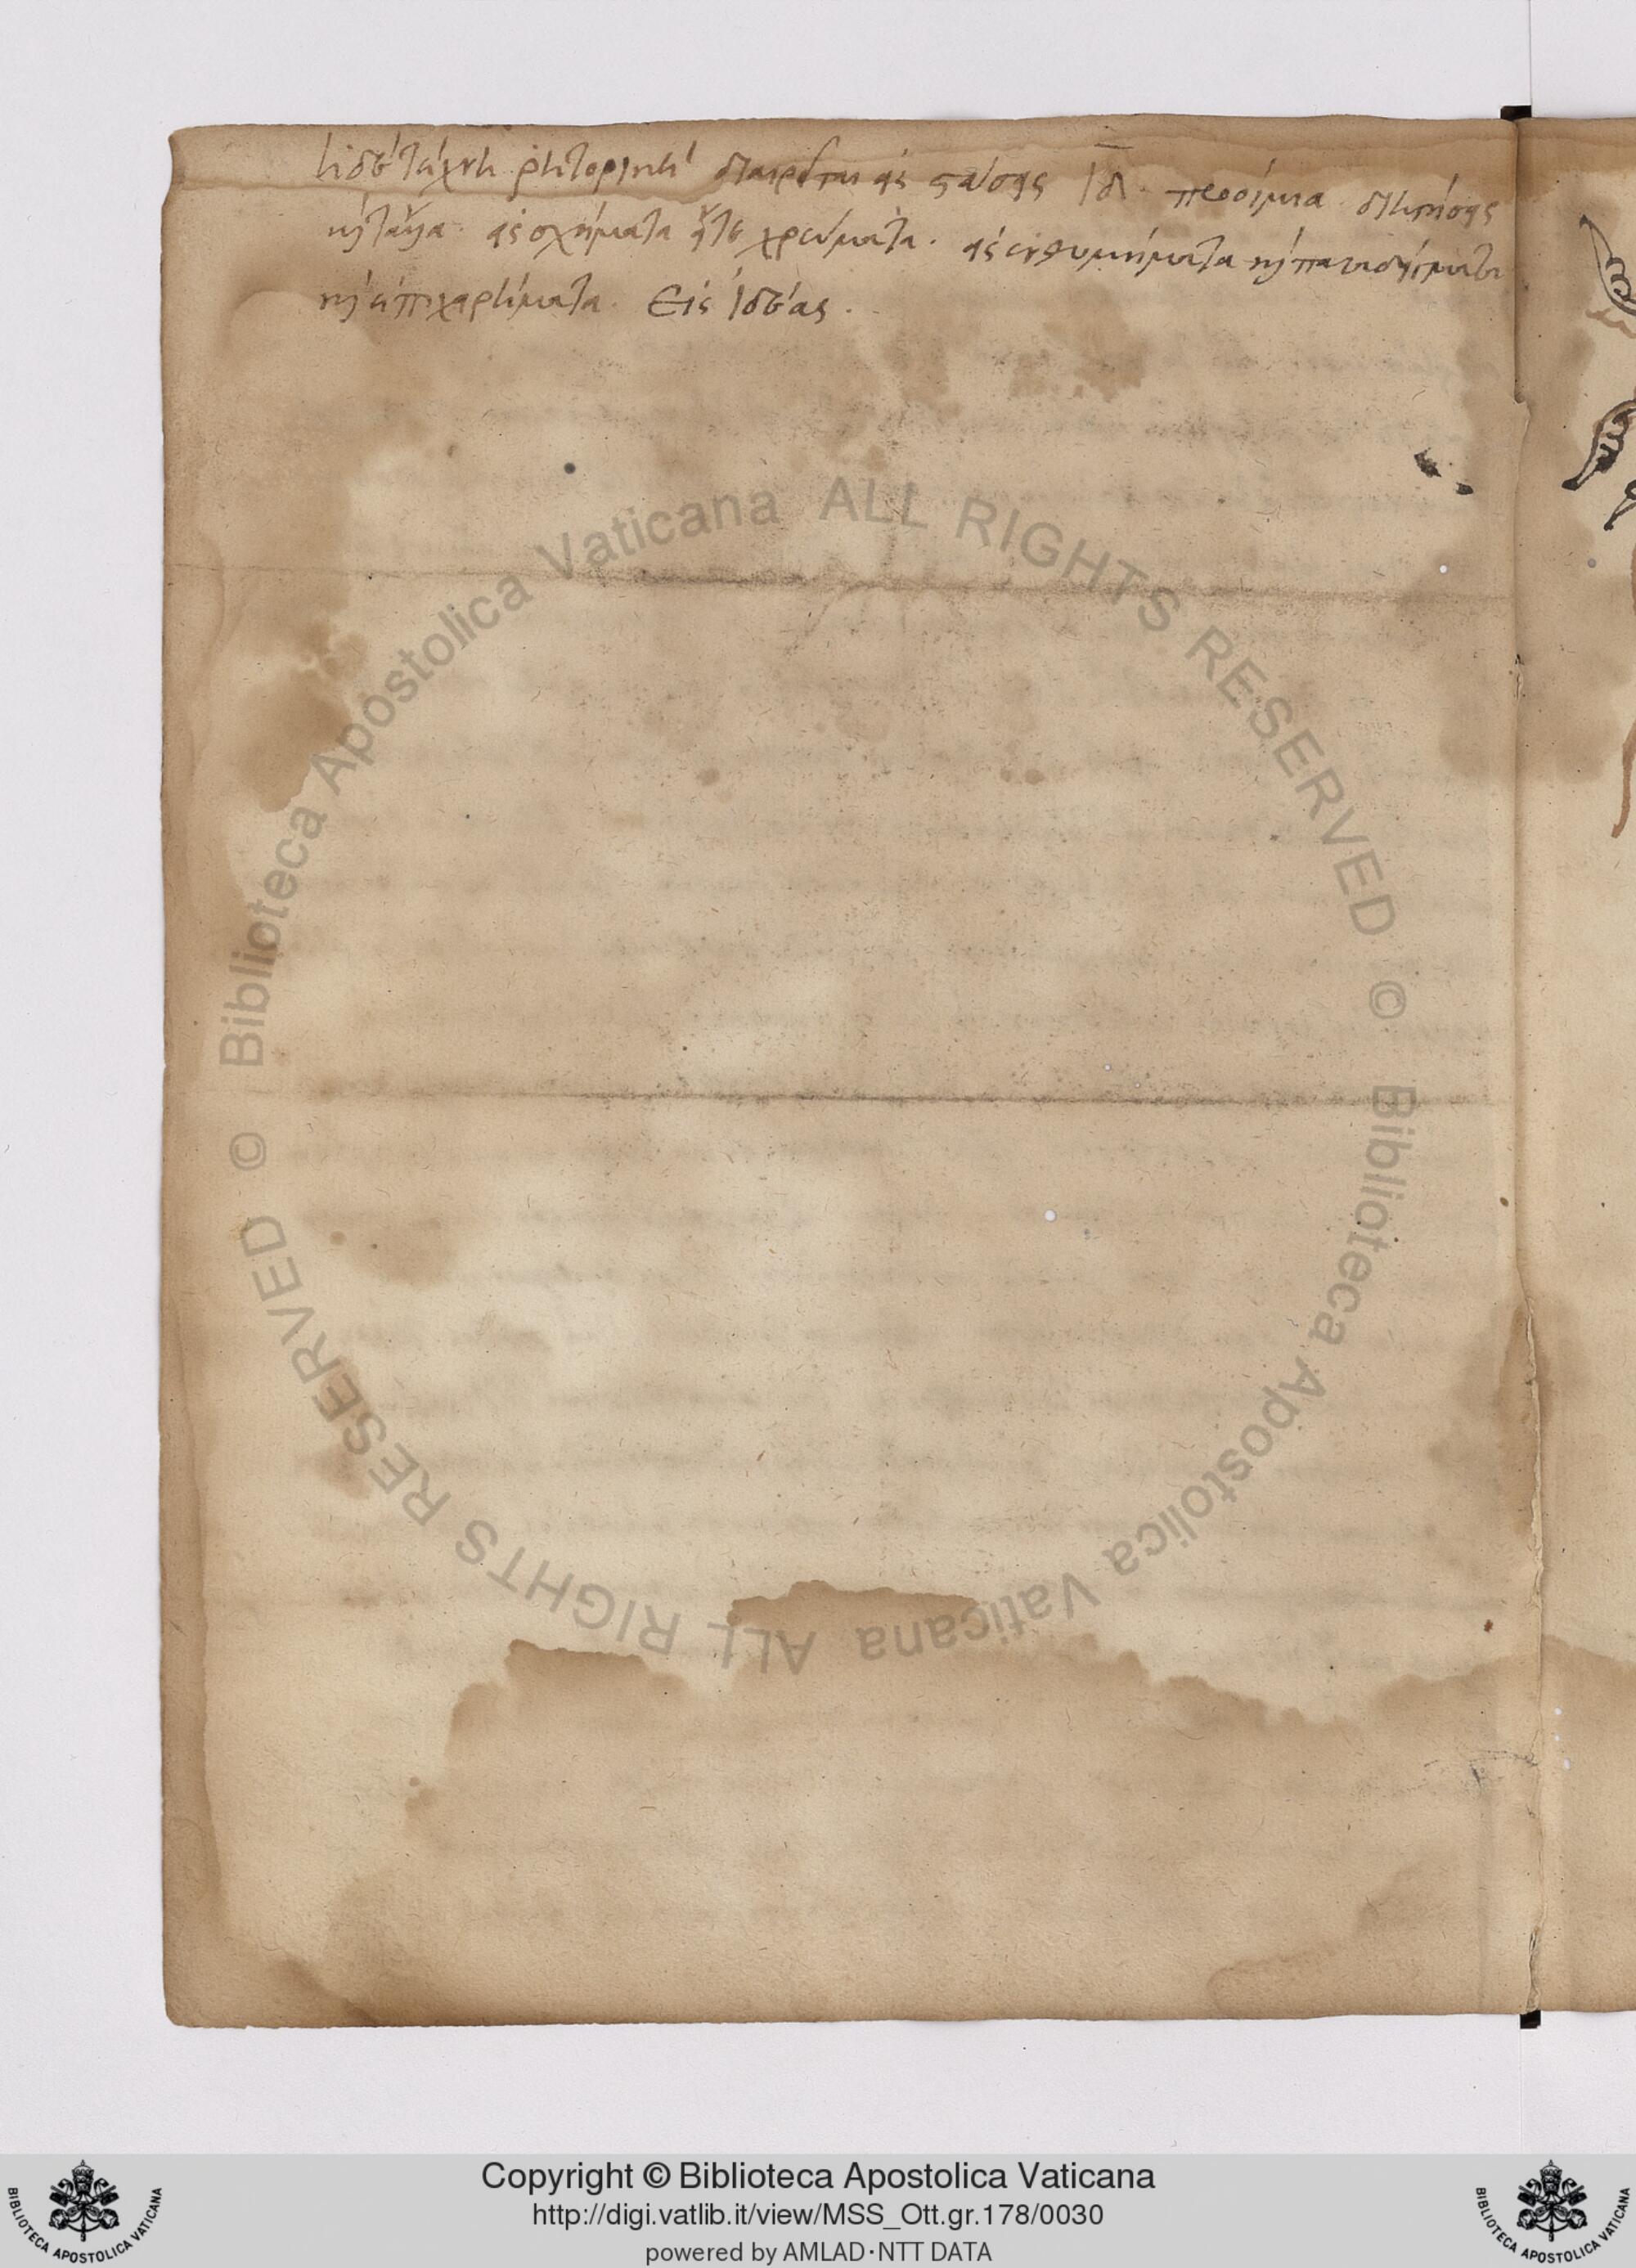 ἡ δὲ τέχνη ῥητορικὴ διαιρεῖται εἰς στάσεις ιδ. προοίμια διηγήσεις
καὶ εἰς σχήματα εἴτε χρώματα. εἰς ἐνθυμήματα καὶ παραδείγματα
καὶ ἐπιχειρήματα. Εἰς ἰδέας.
Biblioteca Apostolica Vaticana ALL RIGHTS RESERVED ©
Biblioteca Apostolica Vaticana ALL RIGHTS RESERVED ©
Copyright © Biblioteca Apostolica Vaticana
http://digi.vatlib.it/view/MSS_Ott.gr.178/0030
powered by AMLAD·NTT DATA
BIBLIOTECA APOSTOLICA VATICANA
BIBLIOTECA APOSTOLICA VATICANA